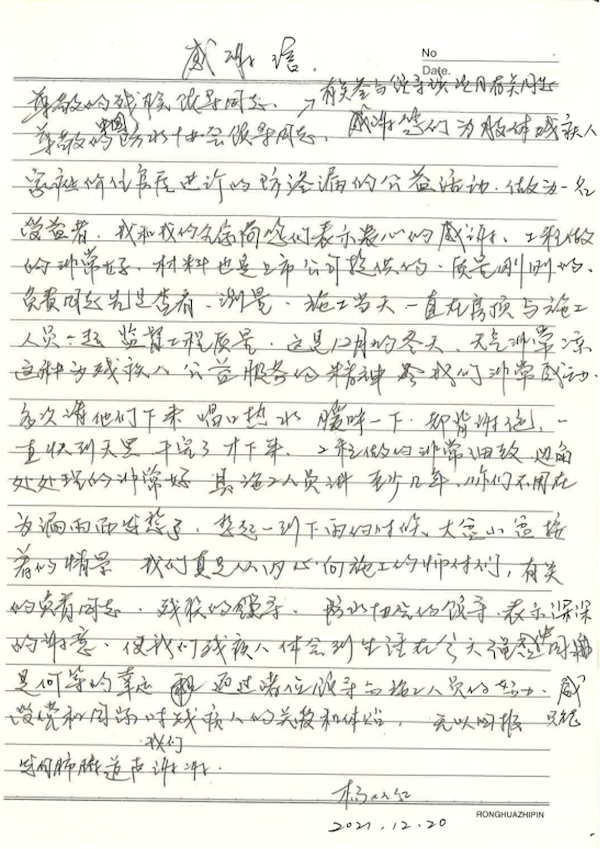 感谢信.
No
Date.
尊敬的残联领导同志. → 有关参与领导该项目有关同志
尊敬的中国防水协会领导同志. 感谢你们为肢体残疾人
家庭价住房进行的防渗漏的公益活动. 做为一名
受益者. 我和我的全家向您们表示衷心的感谢. 工程做
的非常好. 材料也是上市公司提供的. 质量刚刚的.
负责同志先是查看. 测量. 施工当天一直在房顶与施工
人员一起监督工程质量. 这是12月的冬天. 天气非常凉
这种为残疾人公益服务的精神令我们非常感动.
多次请他们下来喝口热水暖呼一下. 都背谢绝, 一
直收到天黑干完了才下来. 工程做的非常细致 边角
处处理的非常好 具施工人员讲至少几年. 咱们不用在
为漏雨而发愁了. 想起一到下雨的时候. 大盆小盆接
着的情景 我们真是从内心向施工的师付们, 有关
的负责同志. 残联的领导. 防水协会的领导. 表示深深
的谢意. 使我们残疾人体会到生活在今天强盛的国家
是何等的幸运 通过诸位领导与施工人员的努力. 感
受党和国家对残疾人的关教和体贴. 无以回报 只能
发自我们肺腑道声谢谢.
2021.12.20
RONGHUAZHIPIN